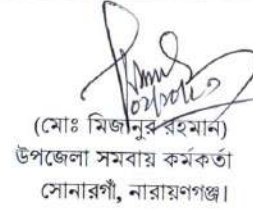 (মোঃ মিজানুর রহমান)
উপজেলা সমবায় কর্মকর্তা
সোনারগাঁ, নারায়ণগঞ্জ।